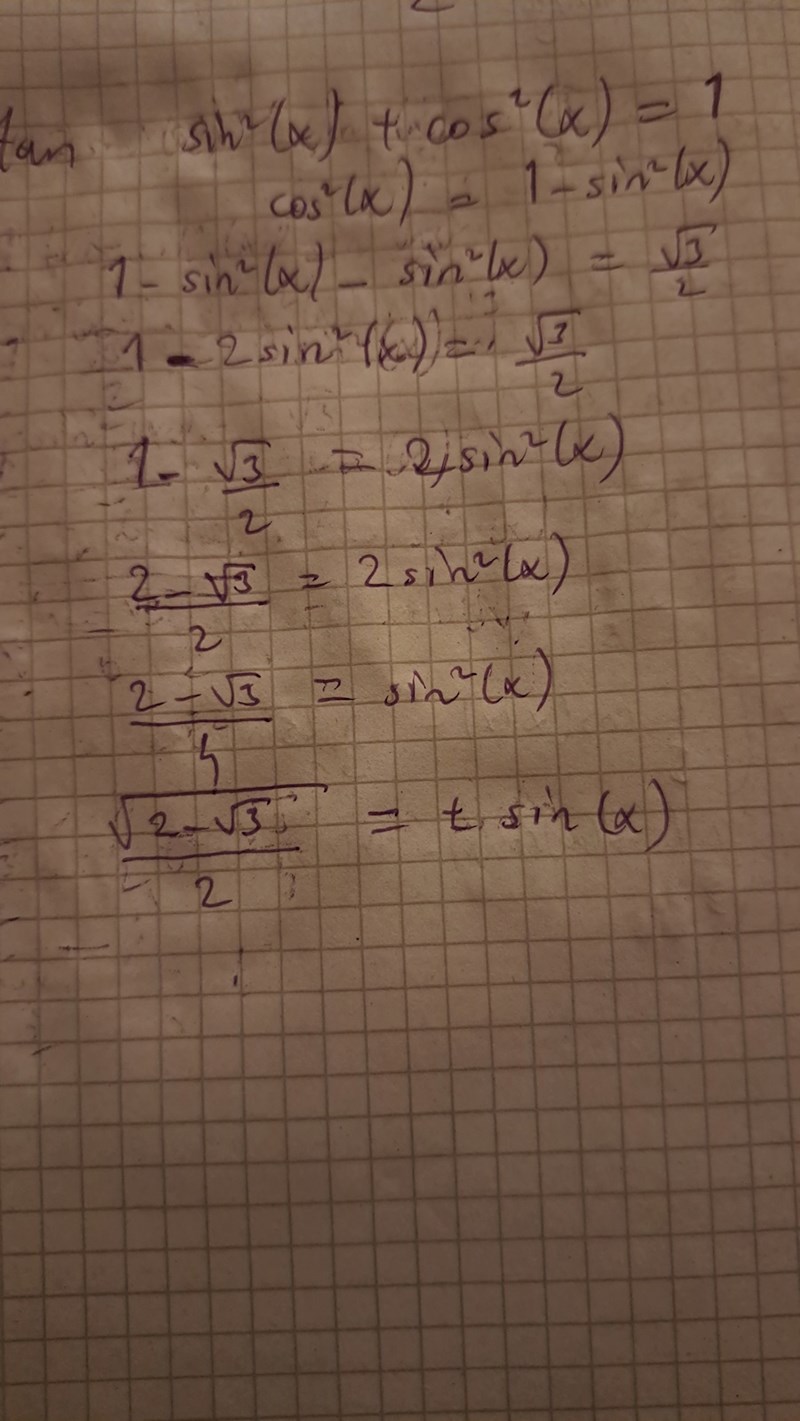 tan sin²(x) + cos²(x) = 1
cos²(x) = 1 - sin²(x)
1 - sin²(x) - sin²(x) = √3/2
1 - 2sin²(x) = √3/2
1 - √3/2 = 2sin²(x)
(2 - √3)/2 = 2sin²(x)
(2 - √3)/4 = sin²(x)
√(2 - √3)/2 = ± sin(x)